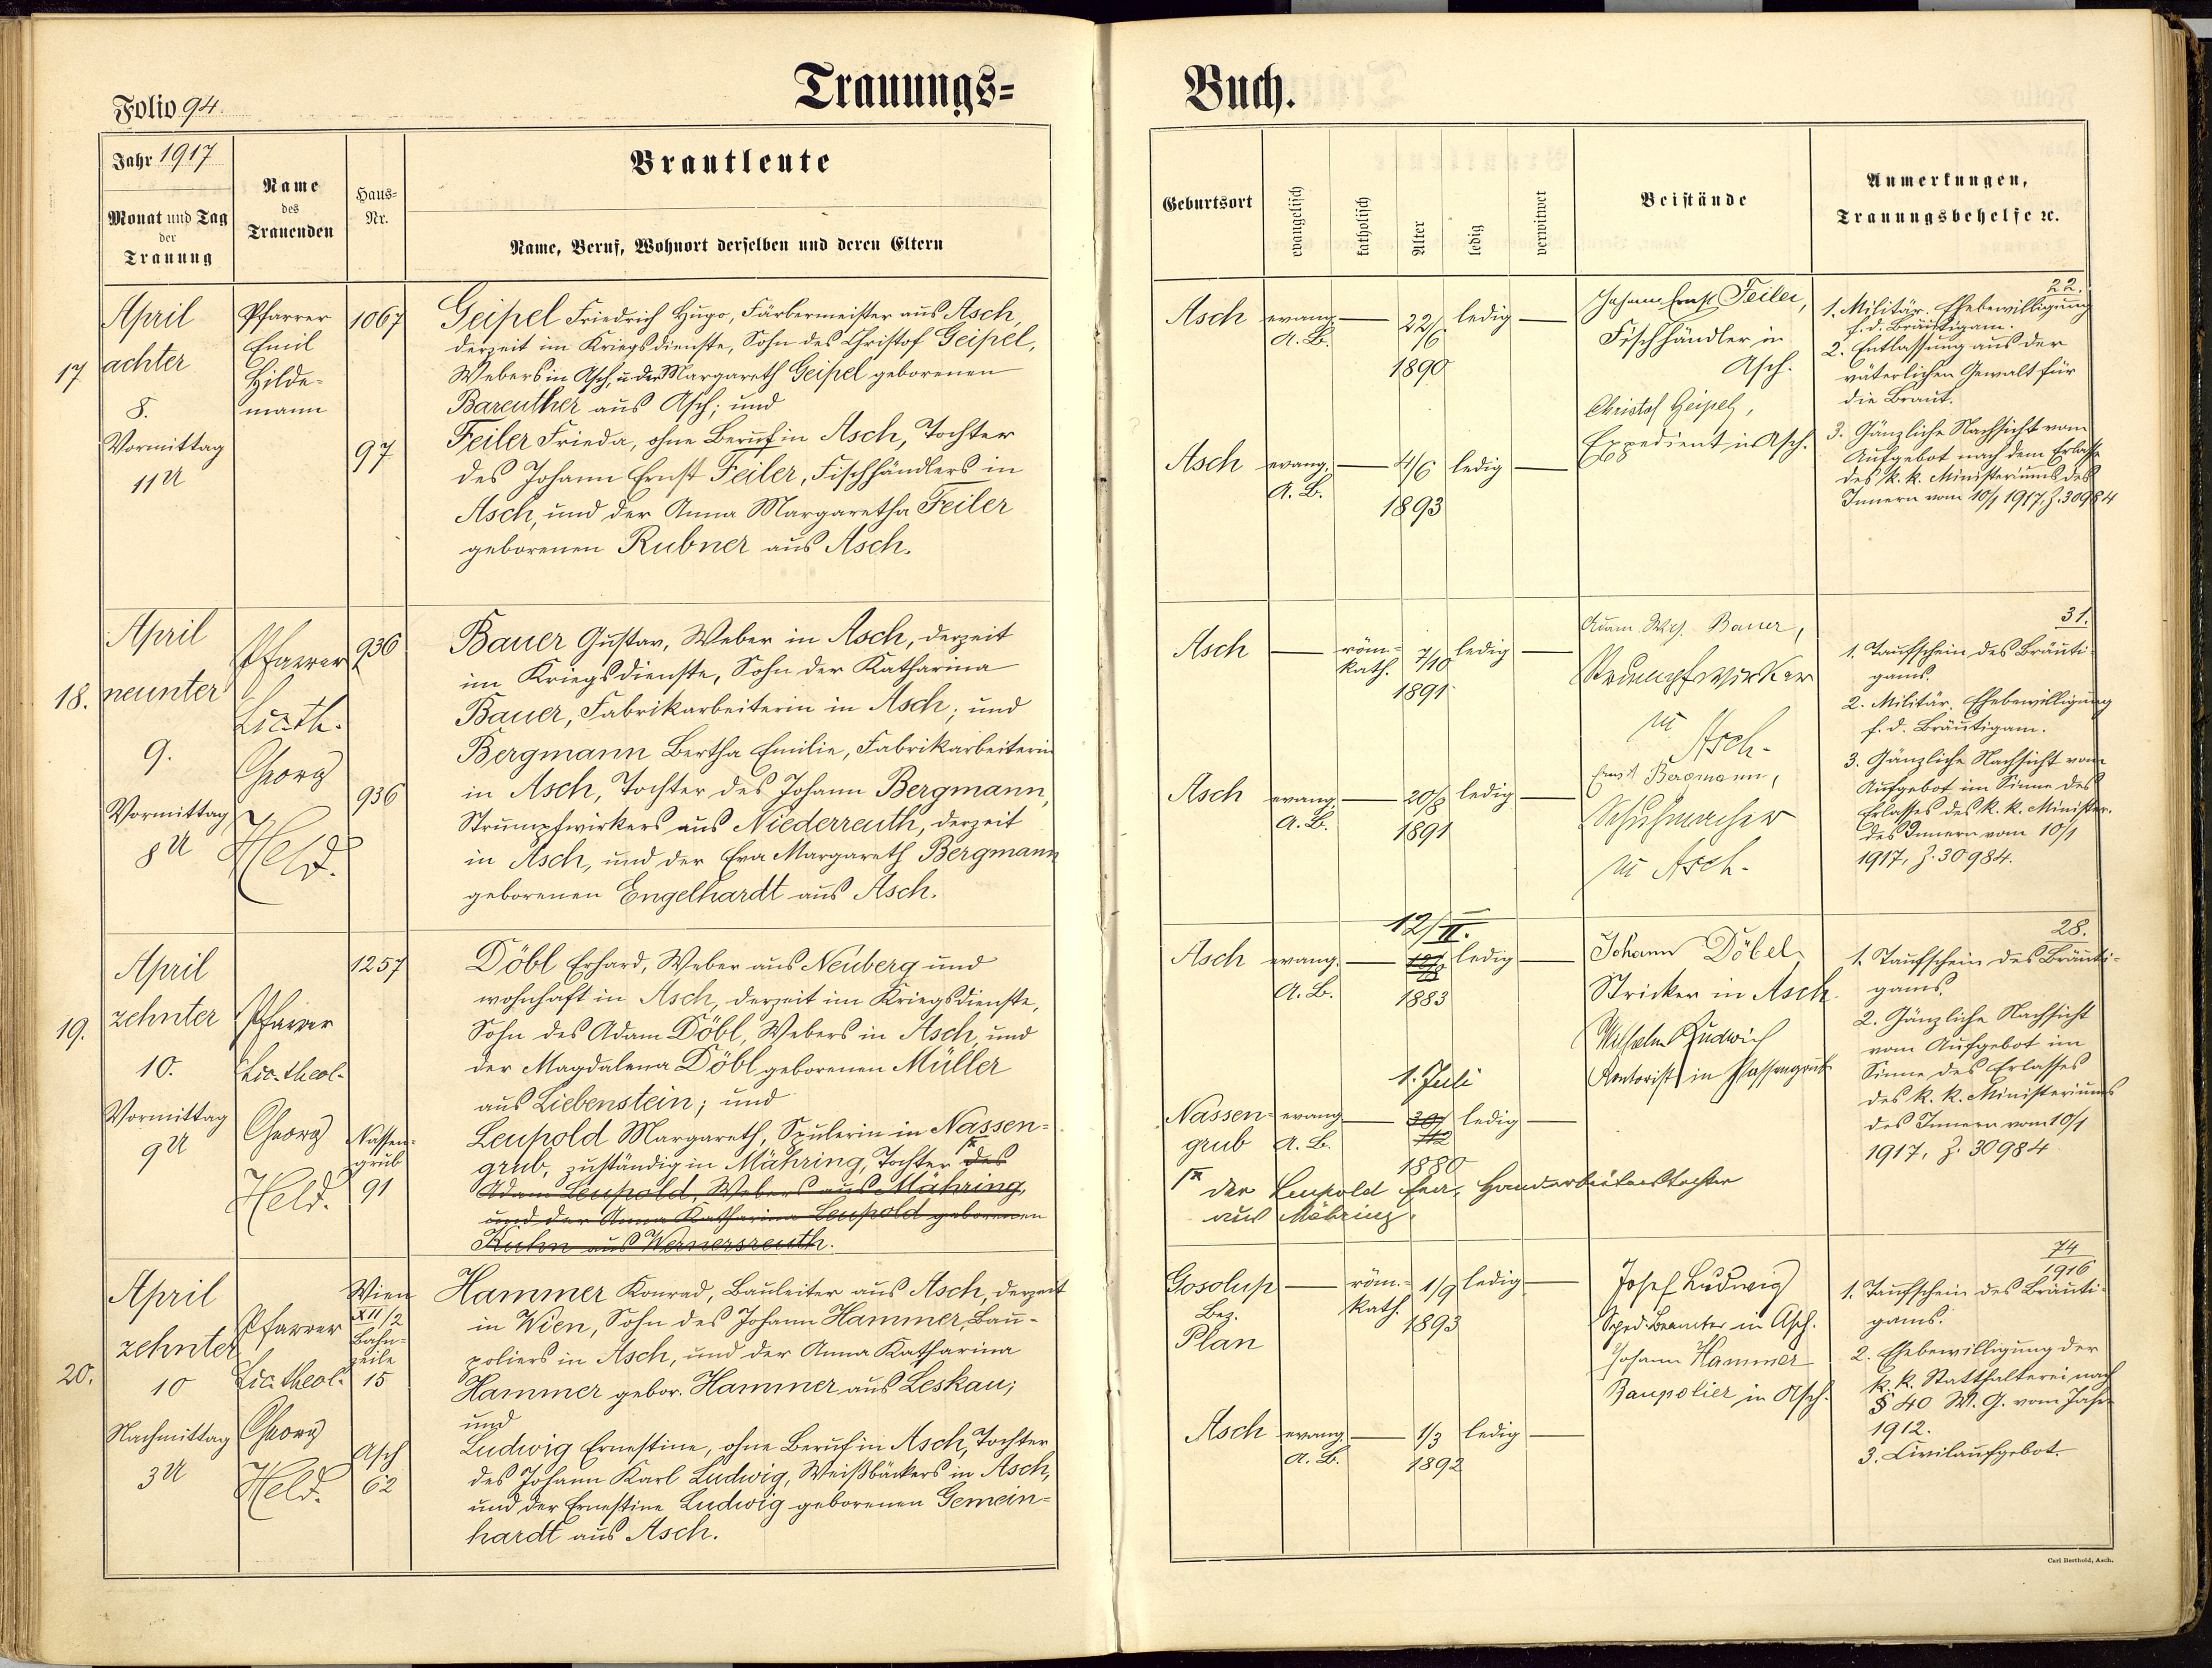 Trauungs=
Folio 94.
Jahr 1917
Monat und Tag
der
Trauung
Name
des
Trauenden
Haus=
Nr.
Brautleute
Name, Beruf, Wohnort derselben und deren Eltern
17
April
achter
8.
Vormittag
11 U
Pfarrer
Emil
Hilde-
mann
1067
97
Geipel Friedrich Hugo, Färbermeister aus Asch,
derzeit im Kriegsdienste, Sohn des Christof Geipel,
Webers in Asch u. der Margareth Geipel geborenen
Bareuther aus Asch; und
Feiler Frieda, ohne Beruf in Asch, Tochter
des Johann Ernst Feiler, Fischhändlers in
Asch, und der Anna Margaretha Feiler
geborenen Rubner aus Asch.
18.
April
neunter
9.
Vormittag
8 U
Pfarrer
Lic. th.
Georg
Held.
936
936
Bauer Gustav, Weber in Asch, derzeit
im Kriegsdienste, Sohn der Katharina
Bauer, Fabrikarbeiterin in Asch; und
Bergmann Bertha Emilie, Fabrikarbeiterin
in Asch, Tochter des Johann Bergmann,
Strumpfwirkers aus Niederreuth, derzeit
in Asch, und der Eva Margareth Bergmann
geborenen Engelhardt aus Asch.
19.
April
zehnter
10.
Vormittag
9 U
Pfarrer
Lic. theol.
Georg
Held.
1257
Nassen-
grub
91
Döbl Erhard, Weber aus Neuberg und
wohnhaft in Asch, derzeit im Kriegsdienste,
Sohn des Adam Döbl, Webers in Asch, und
der Magdalena Döbl geborenen Müller
aus Liebenstein; und
Leupold Margareth, Spulerin in Nassen=
grub, zuständig in Mähring, Tochter des
Adam Leupold, Webers aus Mähring,
und der Anna Katharina Leupold geborenen
Kuhn aus Wernersreuth.
20.
April
zehnter
10
Nachmittag
3 U
Pfarrer
Lic. theol.
Georg
Held.
Wien
XII/2
Bahn-
zeile
15
Asch
62
Hammer Konrad, Bauleiter aus Asch, derzeit
in Wien, Sohn des Johann Hammer, Bau-
poliers in Asch, und der Anna Katharina
Hammer gebor. Hammer aus Leskau;
und
Ludwig Ernestine, ohne Beruf in Asch, Tochter
des Johann Karl Ludwig, Weißbäckers in Asch,
und der Ernestine Ludwig geborenen Gemein=
hardt aus Asch.
Buch.
Geburtsort
evangelisch
katholisch
Alter
ledig
verwitwet
Beistände
Anmerkungen,
Trauungsbehelfe ꝛc.
Asch
evang.
A. B.
22/6
1890
ledig
Asch
evang.
A. B.
4/6
1893
ledig
Johann Ernst Feiler,
Fischhändler in
Asch.
Christof Geipel,
Expedient in Asch.
22.
1. Militär. Ehebewilligung
f. d. Bräutigam.
2. Entlassung aus der
väterlichen Gewalt für
die Braut.
3. Gänzliche Nachsicht vom
Aufgebot nach dem Erlasse
des k. k. Ministeriums des
Innern vom 10/1 1917, Z. 30984
Asch
röm=
kath.
7/10
1891
ledig
Asch
evang.
A. B.
20/8
1891
ledig
Adam Bauer,
Strumpfwirker
in
Asch.
Ernst Bergmann,
Schuhmacher
in Asch.
31.
1. Taufschein des Bräuti-
gams.
2. Militär. Ehebewilligung
f. d. Bräutigam.
3. Gänzliche Nachsicht vom
Aufgebot im Sinne des
Erlasses des k. k. Minister.
des Innern vom 10/1
1917, Z. 30984.
12/II.
Asch
evang.
A. B.
1883
ledig
1. Juli
Nassen=
grub
evang
A. B.
1880
ledig
der Leupold Eva, Handarbeiterstochter
aus Mähring.
Johann Döbel
Stricker in Asch.
Wilhelm Ludwig
Kontorist in Nassengrub
28.
1. Taufschein des Bräuti-
gams.
2. Gänzliche Nachsicht
vom Aufgebot im
Sinne des Erlasses
des k. k. Ministeriums
des Innern vom 10/1
1917, Z. 30984
Gosolup
Bez.
Plan
röm.=
kath.
1/9
1893
ledig
Asch
evang.
A. B.
1/3
1892
ledig
Josef Ludwig
Sped. Beamter in Asch.
Johann Hammer
Baupolier in Asch.
74
1916
1. Taufschein des Bräuti-
gams.
2. Ehebewilligung der
k. k. Statthalterei nach
§ 40 W. G. vom Jahre
1912.
3. Civilaufgebot.
Carl Berthold, Asch.